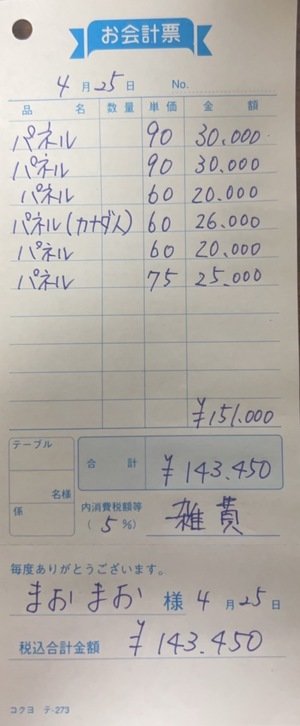 お会計票
4月25日 No.
品名 数量 単価 金額
パネル 90 30.000
パネル 90 30.000
パネル 60 20.000
パネル(カナダ人) 60 26.000
パネル 60 20.000
パネル 75 25.000
¥151.000
テーブル
名様
係
合計 ¥143.450
内消費税額等
(5%) 雑貨
毎度ありがとうございます。
まおまお 様 4月25日
税込合計金額 ¥143.450
コクヨ テ-273